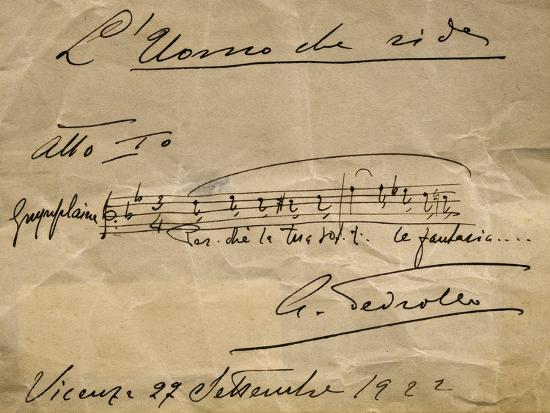 L'Uomo che ride
Atto Iº
Gwynplaine 3 4
Per. chè la tua le fantasia....
A. Pedrollo
Vicenza 27 Settembre 1922